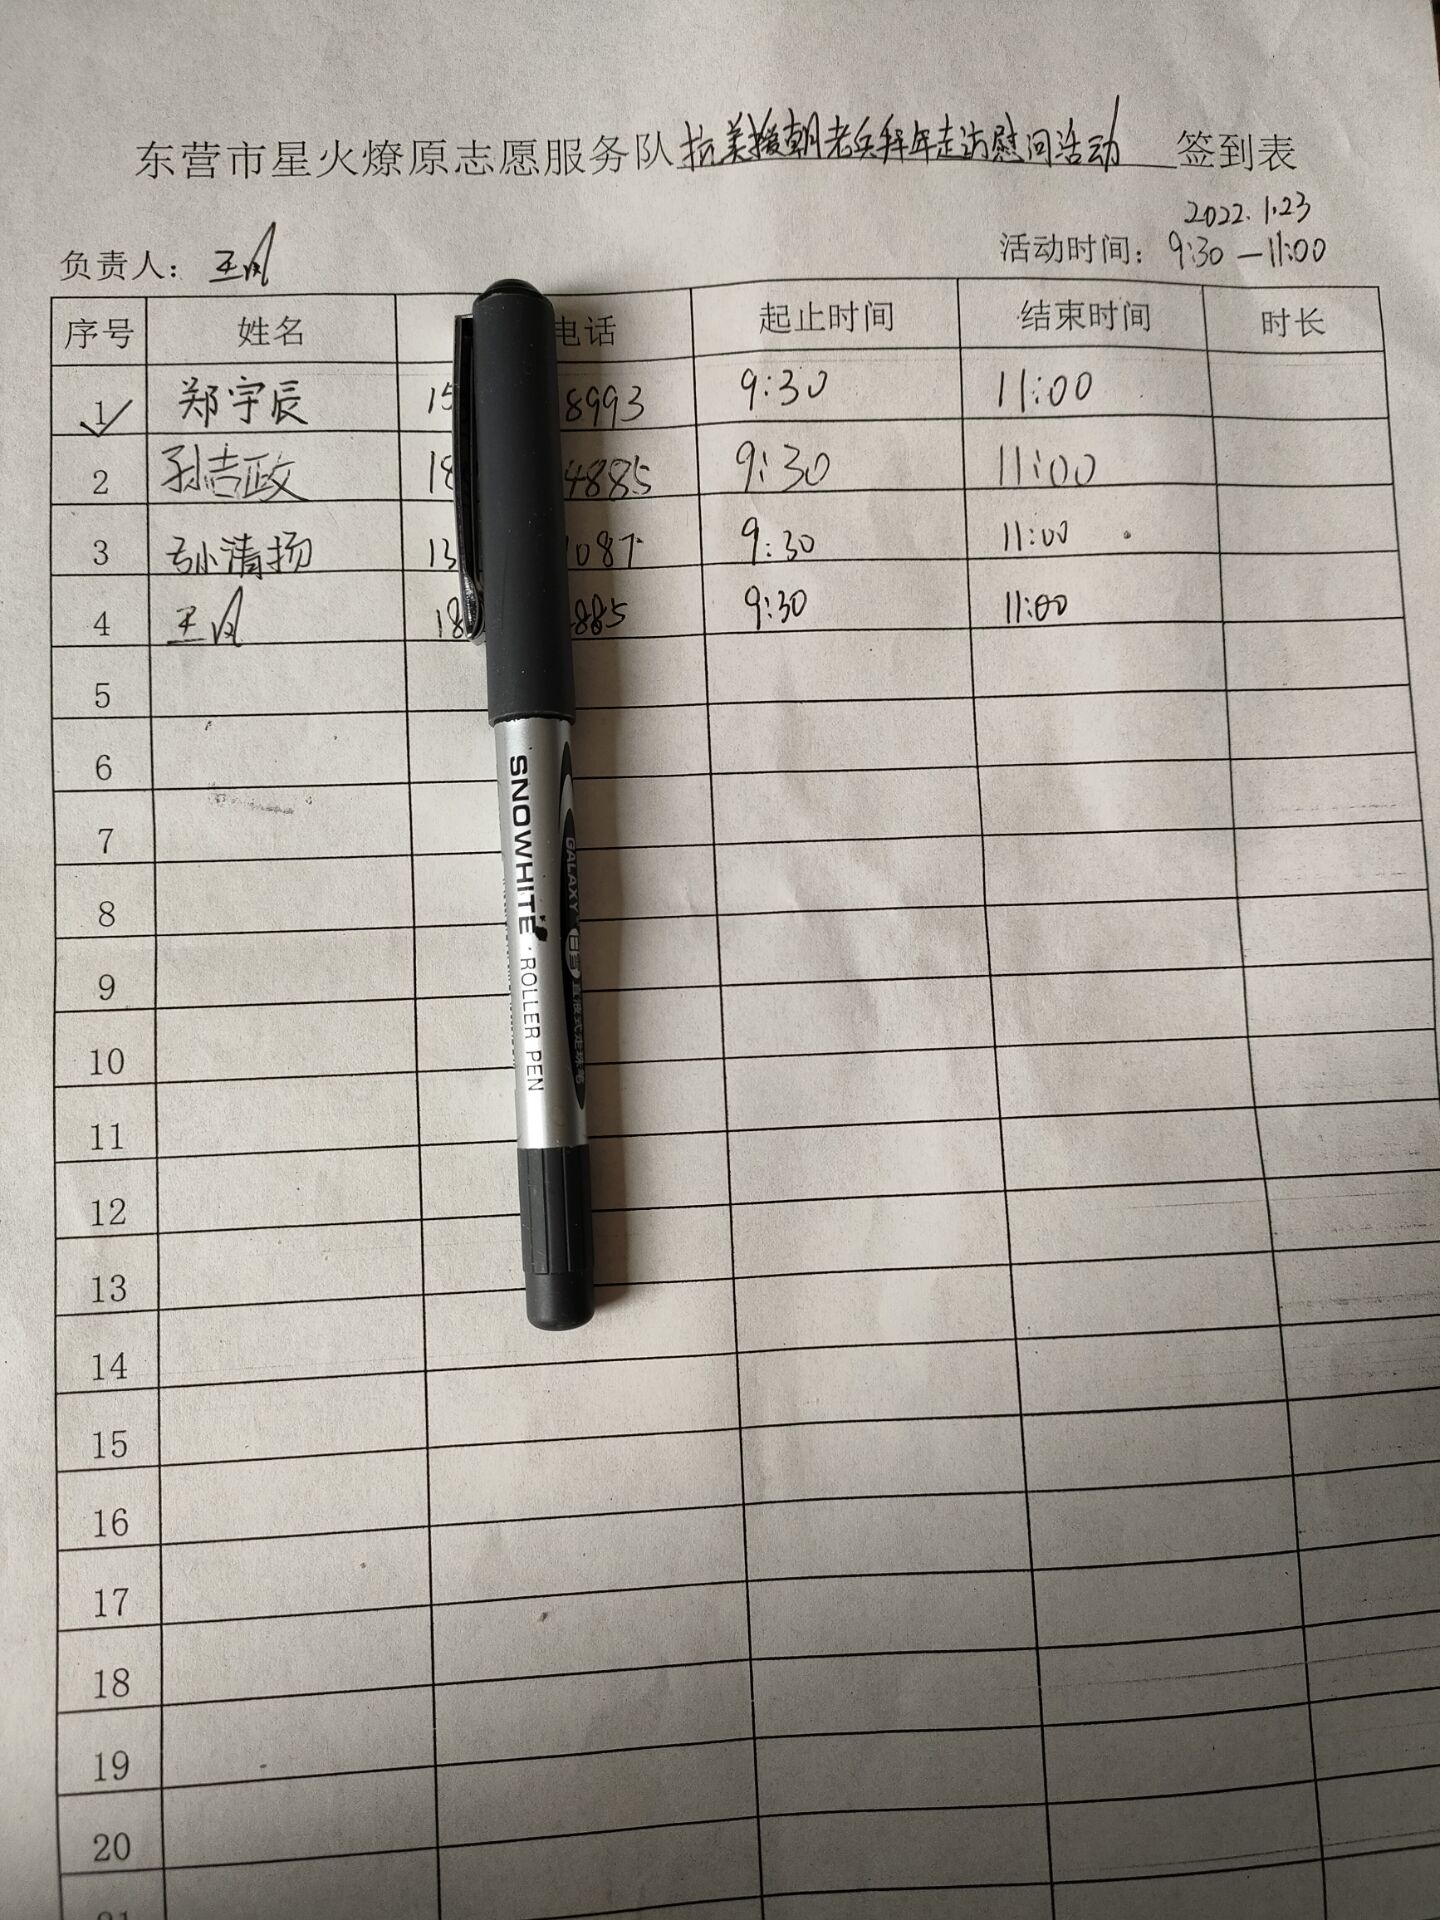 东营市星火燎原志愿服务队抗美援朝老兵拜年走访慰问活动 签到表
2022.1.23
负责人: 王风 活动时间: 9:30—11:00
序号 姓名 电话 起止时间 结束时间 时长
1 郑宇辰 15 8993 9:30 11:00
2 孙吉政 18 4885 9:30 11:00
3 孙清扬 13 1087 9:30 11:00
4 王风 18 885 9:30 11:00
5
6
7
8
9
10
11
12
13
14
15
16
17
18
19
20
SNOWHITE ROLLER PEN
GALAXY 直液式走珠笔